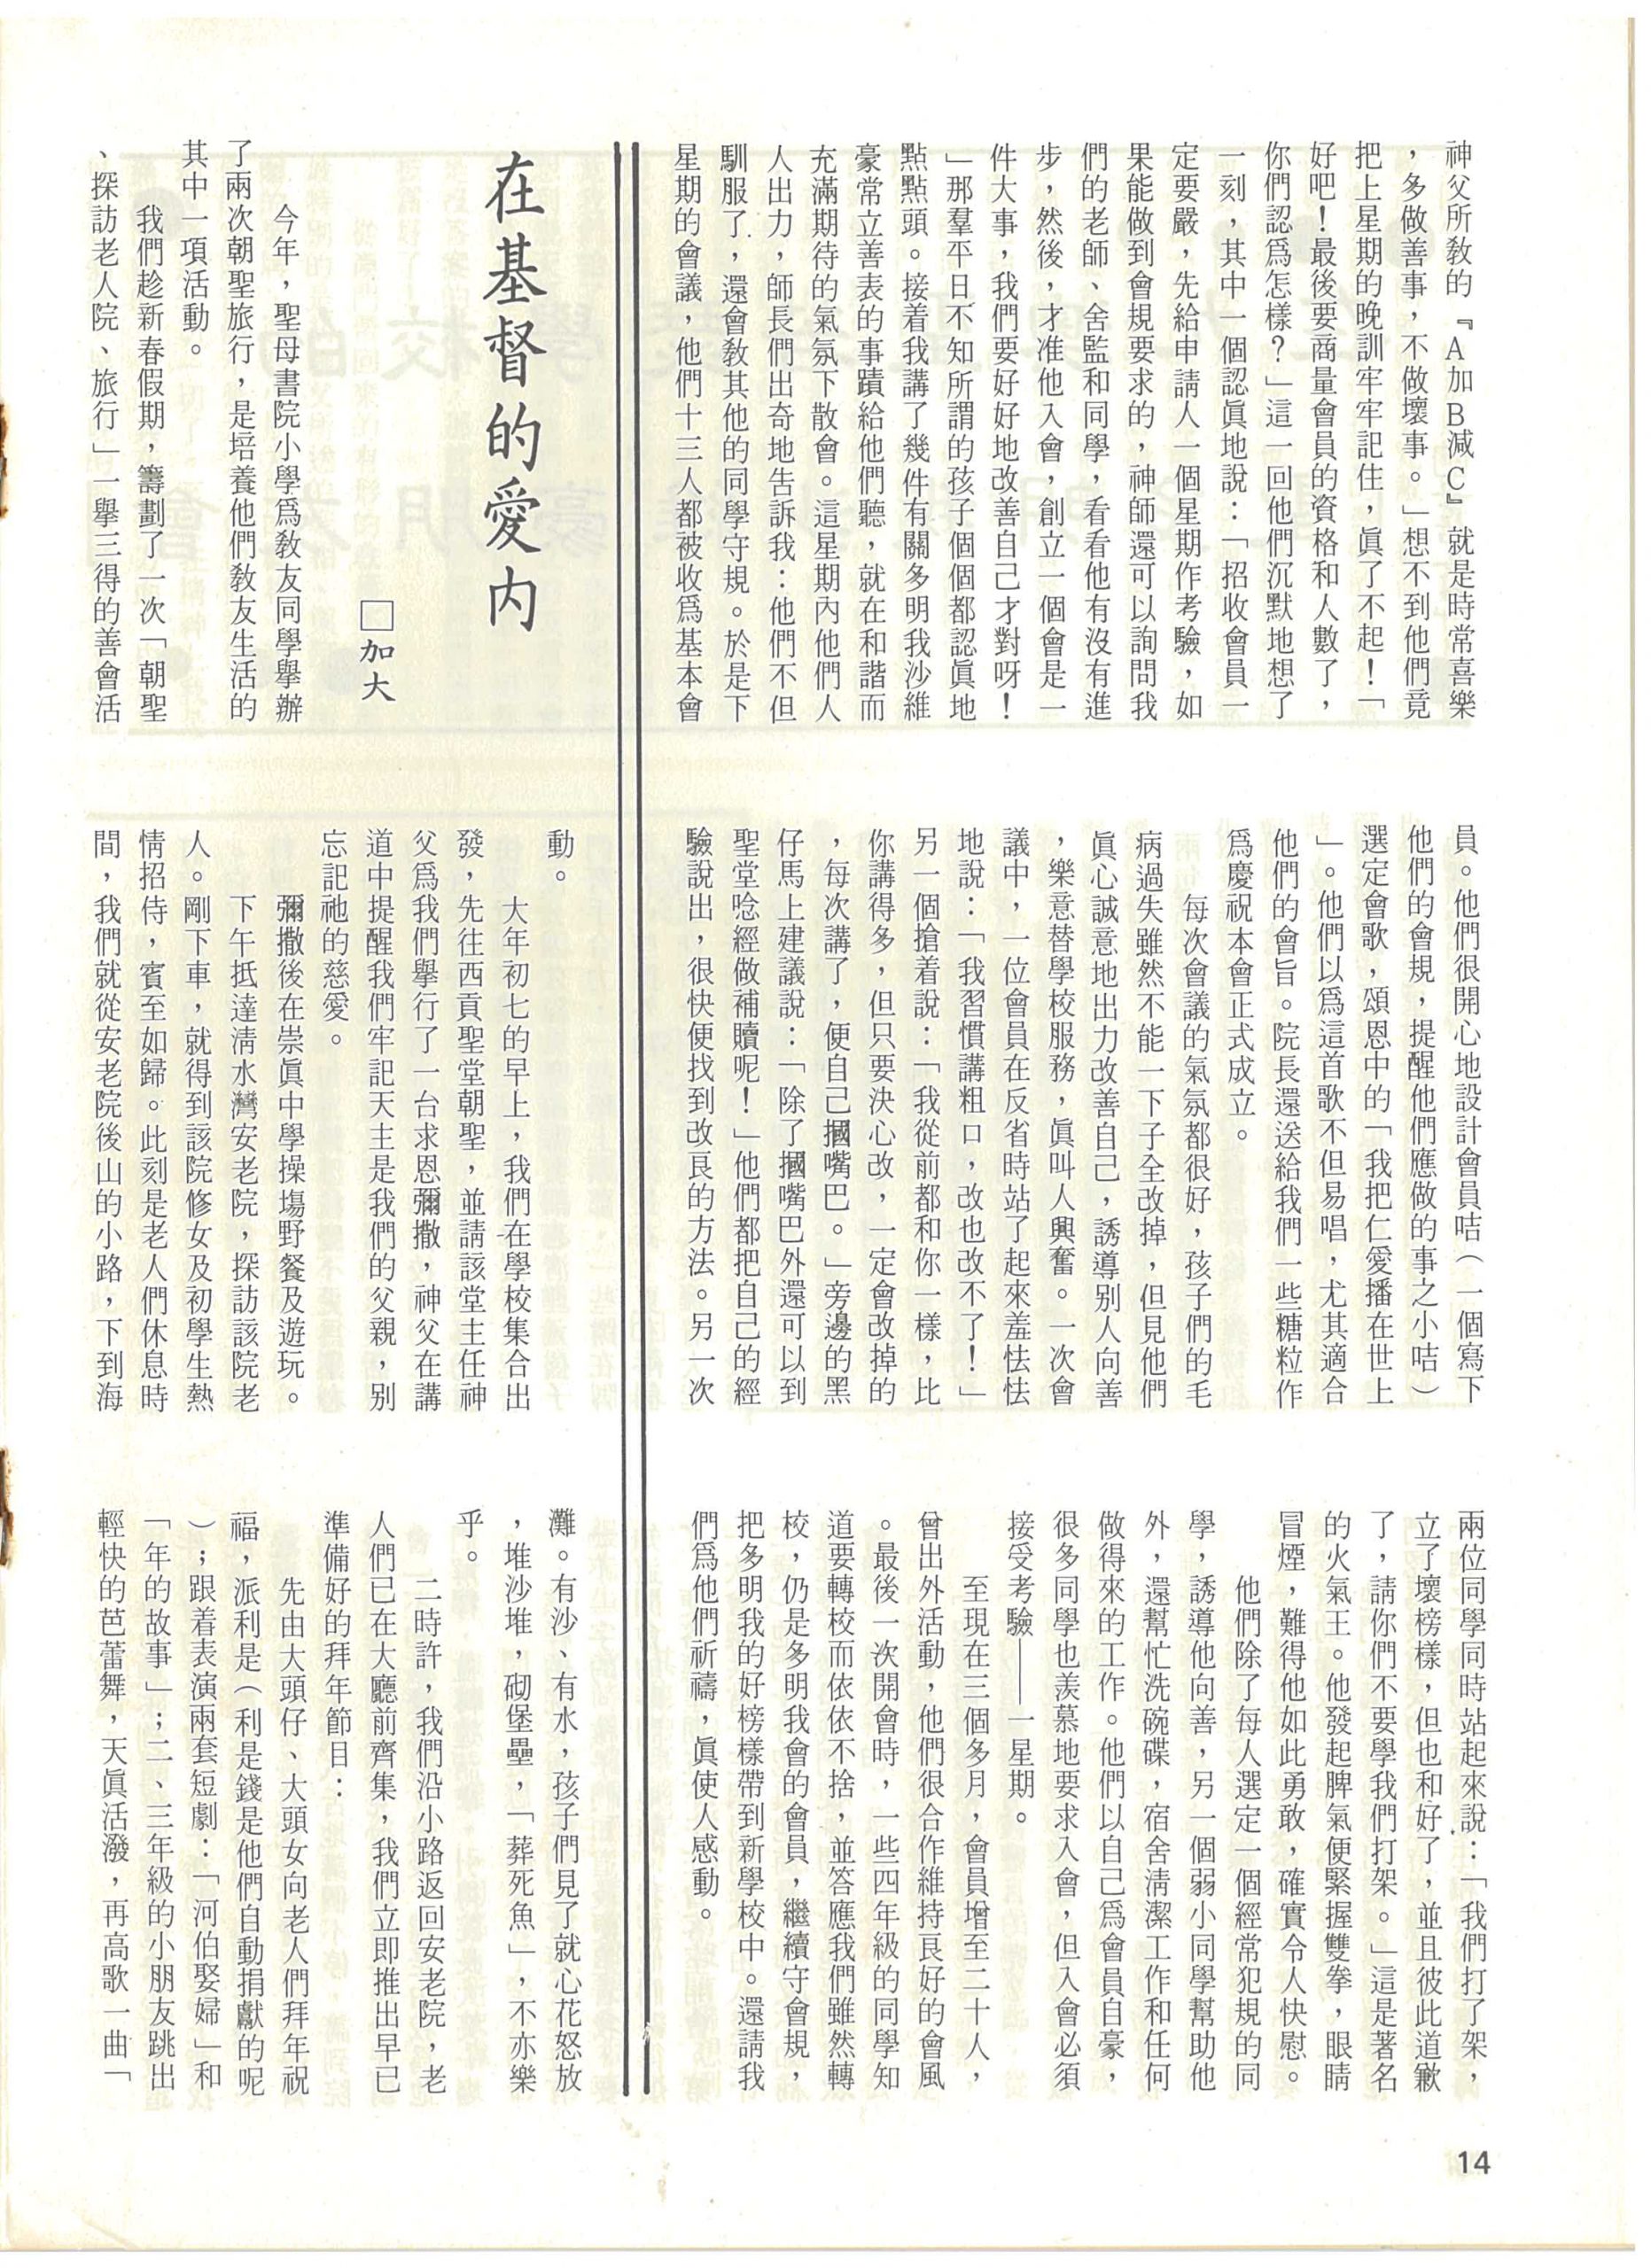 神父所敎的『A加B減C』就是時常喜樂
，多做善事，不做壞事。」想不到他們竟
把上星期的晚訓牢牢記住，眞了不起！「
好吧！最後要商量會員的資格和人數了，
你們認爲怎樣？」這一回他們沉默地想了
一刻，其中一個認眞地說：「招收會員一
定要嚴，先給申請人一個星期作考驗，如
果能做到會規要求的，神師還可以詢問我
們的老師、舍監和同學，看看他有沒有進
步，然後，才准他入會，創立一個會是一
件大事，我們要好好地改善自己才對呀！
」那羣平日不知所謂的孩子個個都認眞地
點點頭。接着我講了幾件有關多明我沙維
豪常立善表的事蹟給他們聽，就在和諧而
充滿期待的氣氛下散會。這星期內他們人
人出力，師長們出奇地告訴我：他們不但
馴服了，還會敎其他的同學守規。於是下
星期的會議，他們十三人都被收爲基本會
員。他們很開心地設計會員咭（一個寫下
他們的會規，提醒他們應做的事之小咭）
選定會歌，頌恩中的「我把仁愛播在世上
」。他們以爲這首歌不但易唱，尤其適合
他們的會旨。院長還送給我們一些糖粒作
爲慶祝本會正式成立。
每次會議的氣氛都很好，孩子們的毛
病過失雖然不能一下子全改掉，但見他們
眞心誠意地出力改善自己，誘導別人向善
，樂意替學校服務，眞叫人興奮。一次會
議中，一位會員在反省時站了起來羞怯怯
地說：「我習慣講粗口，改也改不了！」
另一個搶着說：「我從前都和你一樣，比
你講得多，但只要決心改，一定會改掉的
，每次講了，便自己摑嘴巴。」旁邊的黑
仔馬上建議說：「除了摑嘴巴外還可以到
聖堂唸經做補贖呢！」他們都把自己的經
驗說出，很快便找到改良的方法。另一次
兩位同學同時站起來說：「我們打了架，
立了壞榜樣，但也和好了，並且彼此道歉
了，請你們不要學我們打架。」這是著名
的火氣王。他發起脾氣便緊握雙拳，眼睛
冒煙，難得他如此勇敢，確實令人快慰。
他們除了每人選定一個經常犯規的同
學，誘導他向善，另一個弱小同學幫助他
外，還幫忙洗碗碟，宿舍清潔工作和任何
做得來的工作。他們以自己爲會員自豪，
很多同學也羨慕地要求入會，但入會必須
接受考驗——一星期。
至現在三個多月，會員增至二十人，
曾出外活動，他們很合作維持良好的會風
。最後一次開會時，一些四年級的同學知
道要轉校而依依不捨，並答應我們雖然轉
校，仍是多明我會的會員，繼續守會規，
把多明我的好榜樣帶到新學校中。還請我
們爲他們祈禱，眞使人感動。
在基督的愛內
□加大
今年，聖母書院小學爲敎友同學舉辦
了兩次朝聖旅行，是培養他們敎友生活的
其中一項活動。
我們趁新春假期，籌劃了一次「朝聖
、探訪老人院、旅行」一舉三得的善會活
動。
大年初七的早上，我們在學校集合出
發，先往西貢聖堂朝聖，並請該堂主任神
父爲我們舉行了一台求恩彌撒，神父在講
道中提醒我們牢記天主是我們的父親，別
忘記祂的慈愛。
彌撒後在崇眞中學操場野餐及遊玩。
下午抵達清水灣安老院，探訪該院老
人。剛下車，就得到該院修女及初學生熱
情招侍，賓至如歸。此刻是老人們休息時
間，我們就從安老院後山的小路，下到海
灘。有沙、有水，孩子們見了就心花怒放
，堆沙堆，砌堡壘，「葬死魚」，不亦樂
乎。
二時許，我們沿小路返回安老院，老
人們已在大廳前齊集，我們立即推出早已
準備好的拜年節目：
先由大頭仔、大頭女向老人們拜年祝
福，派利是（利是錢是他們自動捐獻的呢
）；跟着表演兩套短劇：「河伯娶婦」和
「年的故事」；二、三年級的小朋友跳出
輕快的芭蕾舞，天眞活潑，再高歌一曲「
14